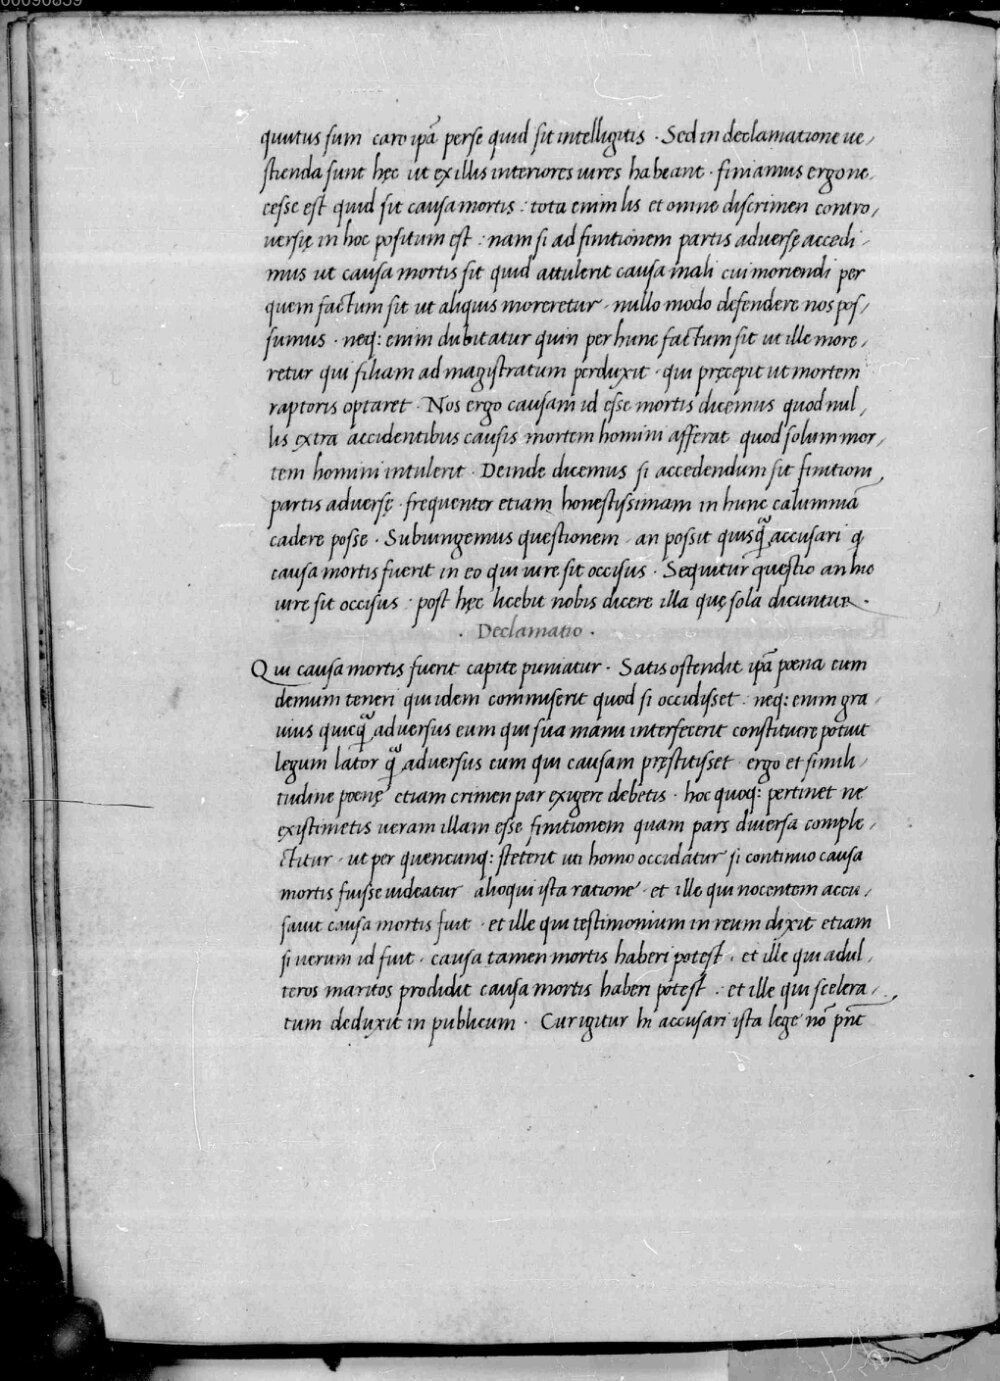 00090859
quutus sum caro ipā perse quid sit intelligitis · Sed in declamatione ue /
stienda sunt hęc ut ex illis interiores uires habeant · finiamus ergo ne
cesse est quid sit causa mortis : tota enim lis et omne discrimen contro /
uersię in hoc positum est : nam si ad finitionem partis aduersę accedi /
mus ut causa mortis sit quid attulerit causa mali cui moriendi per
quem factum sit ut aliquis moreretur · nullo modo defendere nos pos /
sumus · neq: enim dubitatur quin per hunc factum sit ut ille more /
retur qui filiam ad magistratum perduxit · qui pręcepit ut mortem
raptoris optaret · Nos ergo causam id esse mortis dicemus quod nul /
lis extra accidentibus causis mortem homini afferat quod solum mor /
tem homini intulerit · Deinde dicemus si accedendum sit finitioni
partis aduersę · frequenter etiam honestissimam in hunc calumniā
cadere posse · Subiungemus quęstionem an possit quisq̃ accusari q̃
causa mortis fuerit in eo qui iure sit occisus · Sequitur quęstio an hic
iure sit occisus : post hęc licebit nobis dicere illa quę sola dicuntur ·
· Declamatio ·
Qui causa mortis fuerit capite puniatur · Satis ostendit ipā poena eum
demum teneri qui idem commiserit quod si occidisset · neq: enim gra /
uius quicq̃ aduersus eum qui sua manu interfecerit constituere potuit
legum lator q̃ aduersus eum qui causam pręstitisset · ergo et simili /
tudine poenę etiam crimen par exigere debetis · hoc quoq: pertinet ne
existimetis ueram illam esse finitionem quam pars diuersa comple /
ctitur · ut per quencunq: steterit uti homo occidatur si continuo causa
mortis fuisse uideatur alioqui ista ratione et ille qui nocentem accu /
sauit causa mortis fuit · et ille qui testimonium in reum dixit etiam
si uerum id fuit · causa tamen mortis haberi potest · et ille qui adul /
teros maritos prodidit causa mortis haberi potest · et ille qui scelera /
tum deduxit in publicum · Cur igitur hi accusari ista lege nō pn̄t